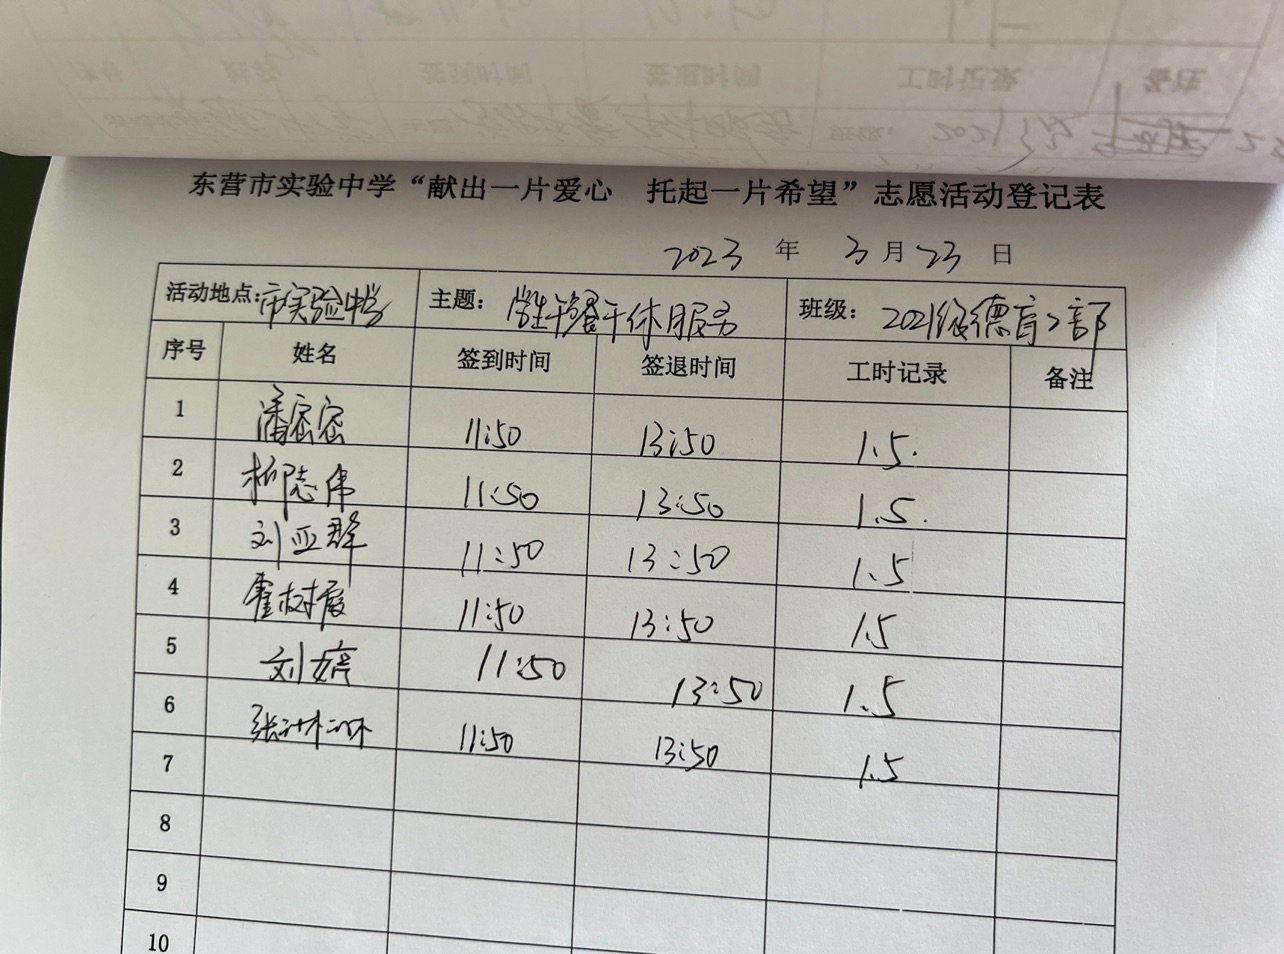 东营市实验中学“献出一片爱心 托起一片希望”志愿活动登记表
2023 年 3 月 23 日
活动地点:市实验中学 主题: 学生午餐午休服务 班级: 2021级德育2部
序号 姓名 签到时间 签退时间 工时记录 备注
1 潘密密 11:50 13:50 1.5.
2 柳志伟 11:50 13:50 1.5.
3 刘亚群 11:50 13:50 1.5
4 霍树霞 11:50 13:50 1.5
5 刘婷 11:50 13:50 1.5
6 张琳琳 11:50 13:50 1.5
7
8
9
10